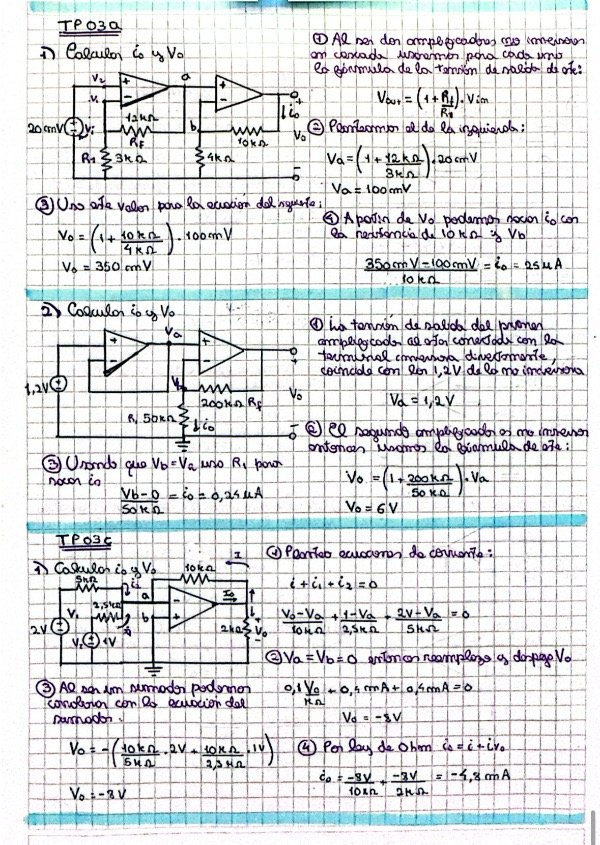 TP03a
1) Calcular i₀ y V₀
V₂
V₁
20mV
Vi
12kΩ
Rf
R1
3kΩ
a
b
4kΩ
10kΩ
i₀
V₀
① Al ser dos amplificadores no inversores
en cascada usaremos para cada uno
la fórmula de la tensión de salida de este:
Vout = (1 + Rf/R1) . Vin
② Planteamos el de la izquierda:
Va = (1 + 12kΩ/3kΩ) . 20mV
Va = 100mV
③ Uso este valor para la ecuación del siguiente:
V₀ = (1 + 10kΩ/4kΩ) . 100mV
V₀ = 350mV
④ A partir de V₀ podemos sacar i₀ con
la resistencia de 10kΩ y Vb
350mV - 100mV / 10kΩ = i₀ = 25μA
2) Calcular i₀ y V₀
1,2V
Va
Vb
R, 50kΩ
200kΩ Rf
i₀
V₀
① La tensión de salida del primer
amplificador al estar conectada con la
terminal inversora directamente,
coincide con los 1,2V de la no inversora
Va = 1,2V
② El segundo amplificador es no inversor
entonces usamos la fórmula de este:
V₀ = (1 + 200kΩ/50kΩ) . Va
V₀ = 6V
③ Usando que Vb = Va uso R1 para
sacar i₀
Vb - 0 / 50kΩ = i₀ = 0,24μA
TP03c
1) Calcular i₀ y V₀
5kΩ
2,5kΩ
V₁
2V
V₂
1V
a
b
10kΩ
I
I₀
2kΩ
V₀
① Planteo ecuaciones de corriente:
i + i₁ + i₂ = 0
V₀-Va/10kΩ + 1-Va/2,5kΩ + 2V-Va/5kΩ = 0
② Va = Vb = 0 entonces reemplazo y despejo V₀
0,1 V₀/kΩ + 0,4mA + 0,4mA = 0
V₀ = -8V
③ Al ser un sumador podemos
corroborar con la ecuación del
sumador.
V₀ = -(10kΩ/5kΩ . 2V + 10kΩ/2,5kΩ . 1V)
V₀ = -8V
④ Por ley de Ohm i₀ = i + iv₀
i₀ = -8V/10kΩ + -8V/2kΩ = -4,8mA